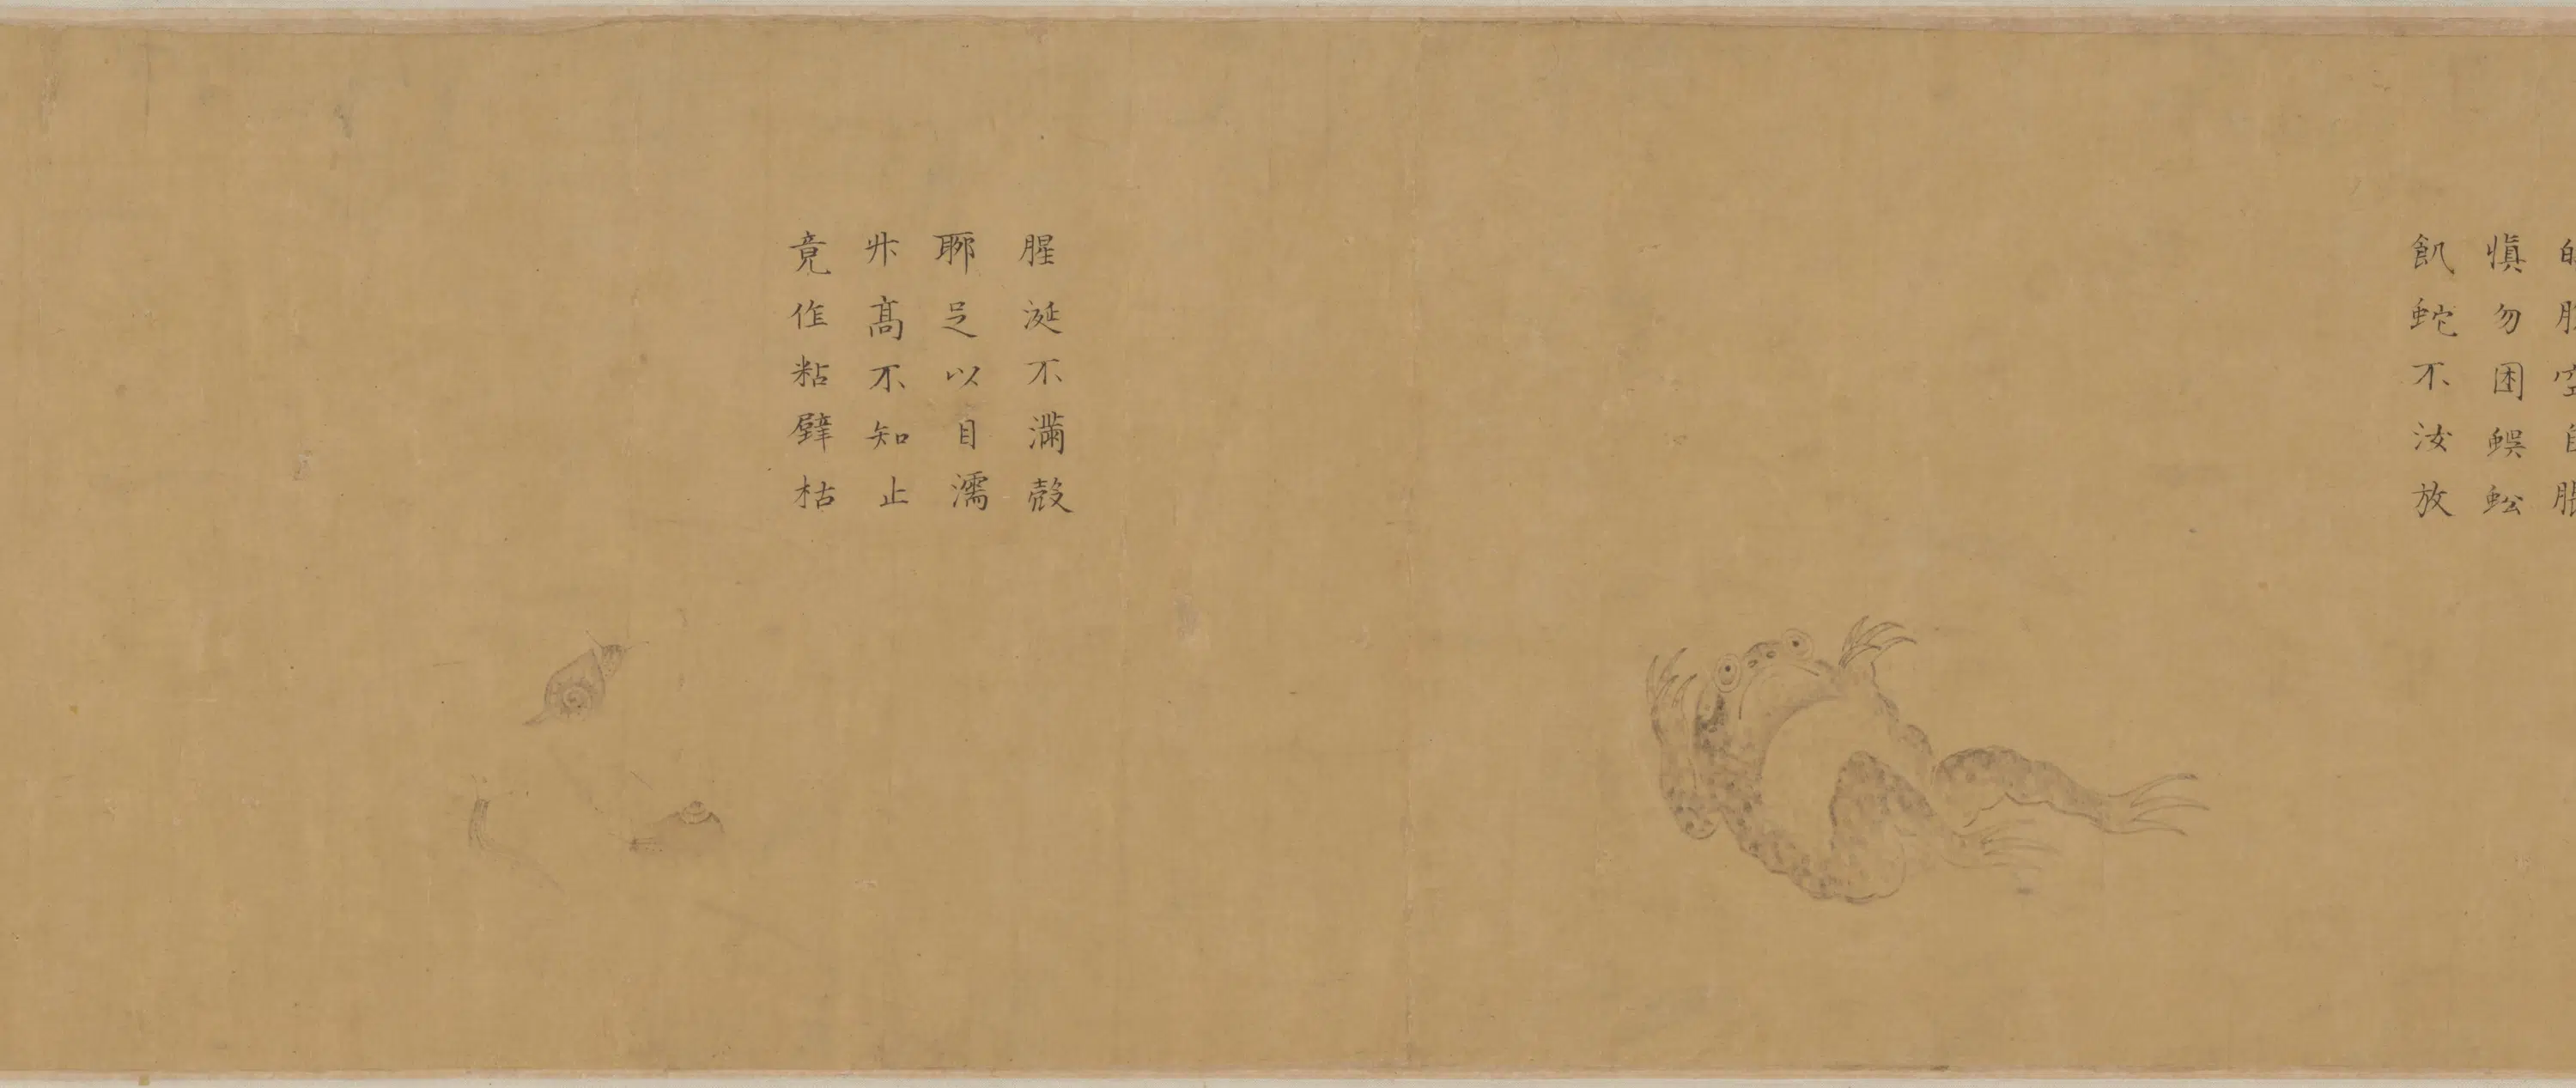 慎勿困蜈蚣
飢蛇不汝放
腥涎不滿殼
聊足以自濡
升高不知止
竟作粘壁枯